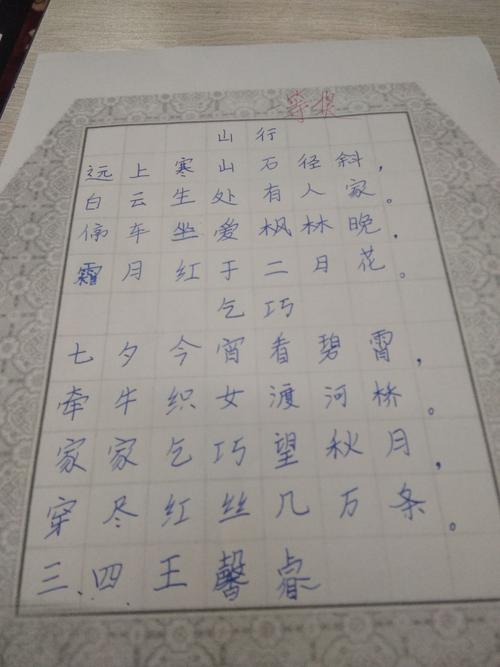 山行
远上寒山石径斜，
白云生处有人家。
停车坐爱枫林晚，
霜月红于二月花。
乞巧
七夕今宵看碧霄，
牵牛织女渡河桥。
家家乞巧望秋月，
穿尽红丝几万条。
三、四.王馨睿